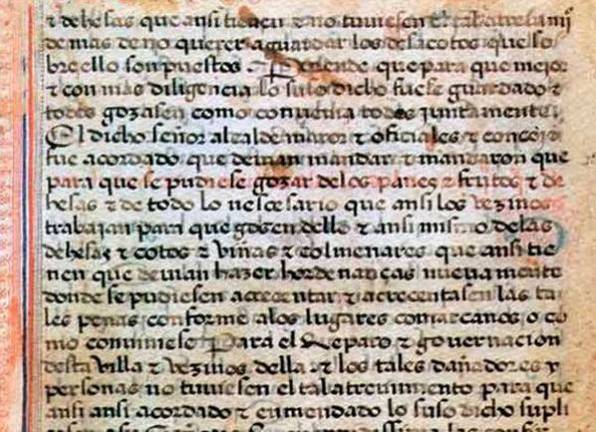 ⁊ dehesas que ansi tienen ⁊ no tuuiesen el tal atreuimi
demas de no querer aguardar los desacotos que so
bre ello son puestos Por ende que para que mejor
⁊ con mas diligencia lo suso dicho fuese guardado ⁊
todos gozasen como conuenia todos juntamente
El dicho señor alcalde mayor ⁊ oficiales ⁊ concejo
fue acordado que deuian mandar ⁊ mandaron que
para que se pudiese gozar delos panes ⁊ frutos ⁊ de
hesas ⁊ de todo lo nescesario que ansi los vezinos
trabajan para que gosen dello ⁊ ansi mismo delas
dehesas ⁊ cotos ⁊ viñas ⁊ colmenares que ansi tie
nen que deuian hazer hordenanças nueuamente
donde se pudiesen acrecentar ⁊ acrecentasen las ta
les penas conforme alos lugares comarcanos o co
mo conuiniese Para el Reparo ⁊ gouernacion
desta villa ⁊ vezinos della ⁊ los tales dañadores y
personas no tuuiesen el tal atreuimiento para que
ansi ansi acordado ⁊ enmendado lo suso dicho supli